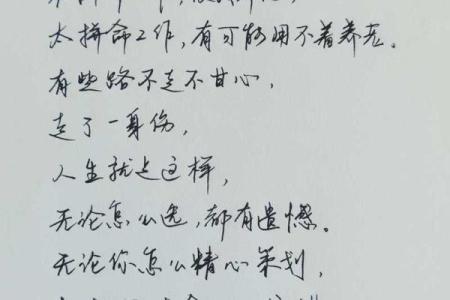 太拼命工作，有可能用不着养老。
有些路不走不甘心，
走了一身伤，
人生就是这样，
无论怎么选，都有遗憾。
无论你怎么精心策划，